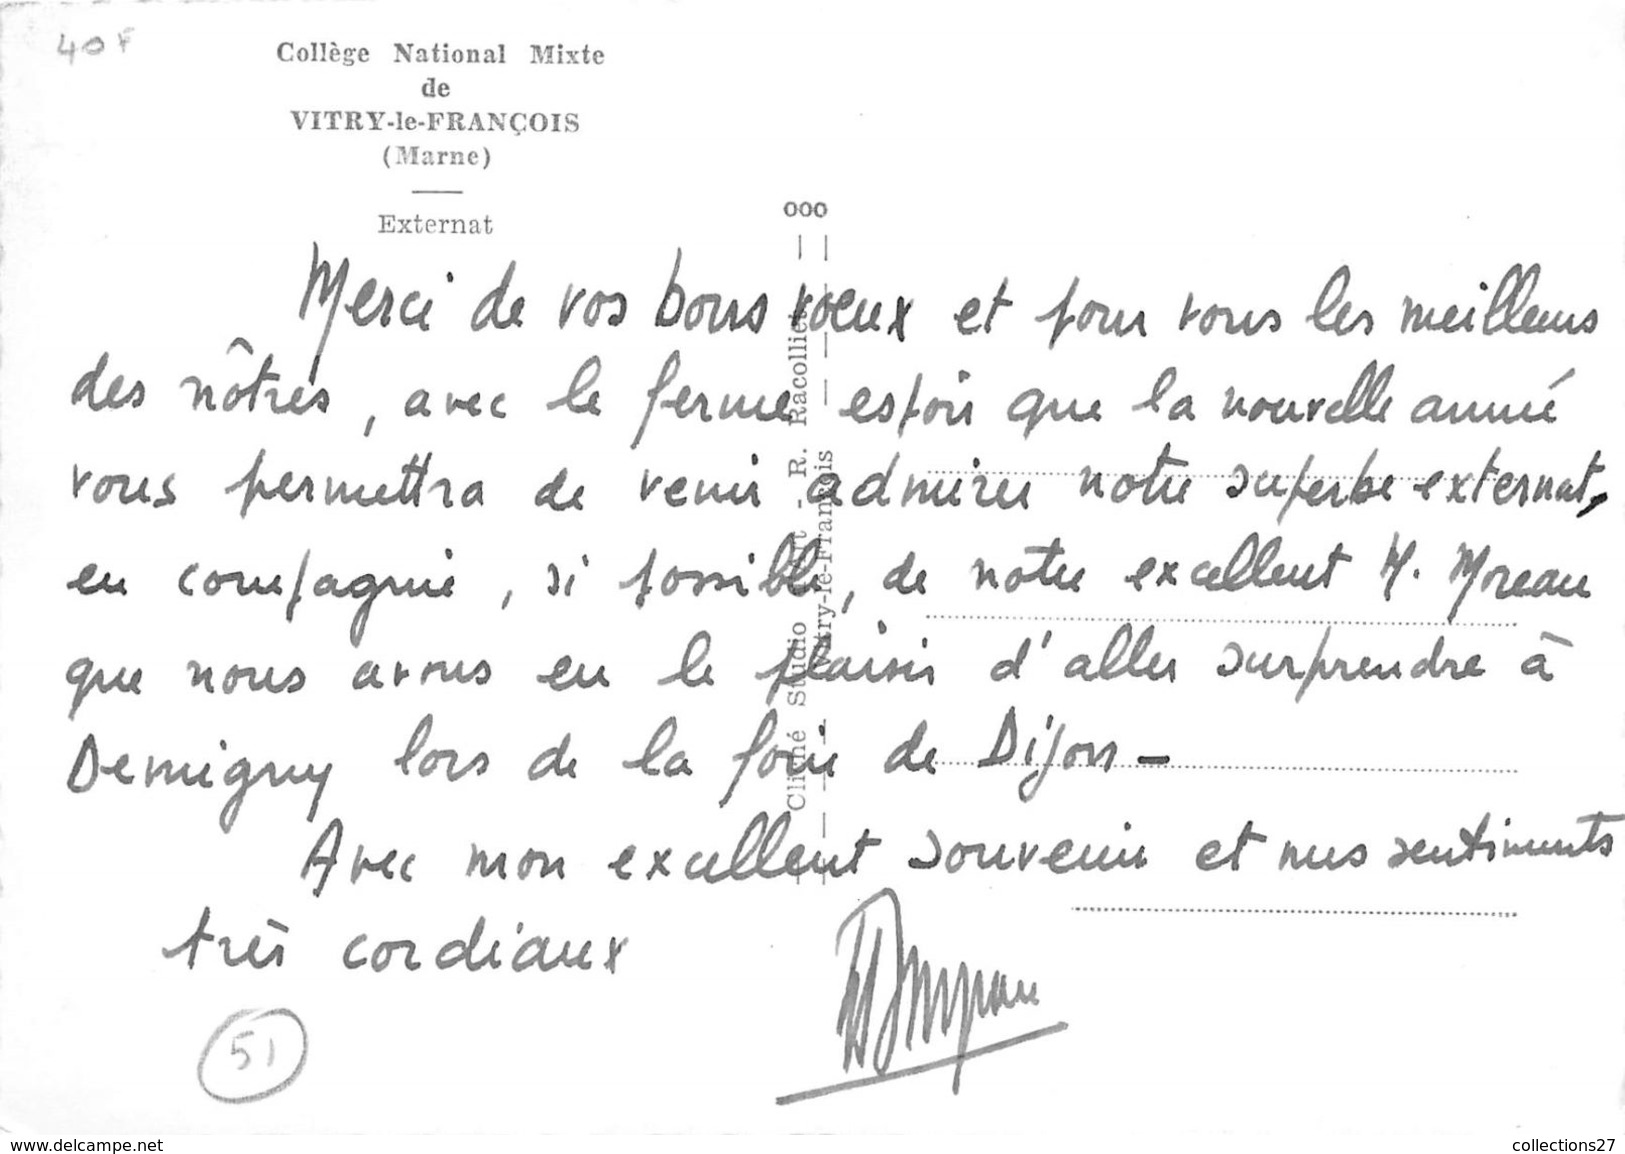 40F
Collège National Mixte
de
VITRY-le-FRANÇOIS
(Marne)
Externat
ooo
Merci de vos bons voeux et pour vous les meilleurs
des nôtres, avec le ferme espoir que la nouvelle année
vous permettra de venir admirer notre superbe externat,
en compagnie, si possible, de notre excellent M. Moreau
que nous avons eu le plaisir d'aller surprendre à
Demigny lors de la foire de Dijon -
Avec mon excellent souvenir et mes sentiments
très cordiaux
51
Cliché Studio Art - R. Racolliet
Vitry-le-François
www.delcampe.net
collections27